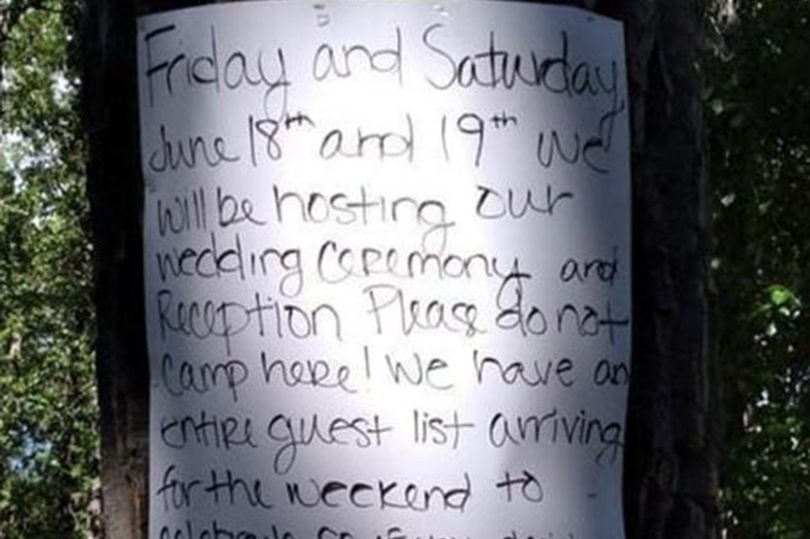 Friday and Saturday
June 18th and 19th we
will be hosting our
wedding ceremony and
Reception Please do not
Camp here! We have an
entire guest list arriving
for the weekend to
celebrate so